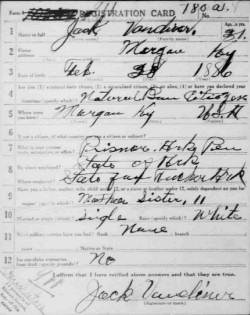 REGISTRATION CARD No. 180
1 Name in full Jack Vandiver Age, in yrs. 31
2 Home address Morgan Ky
3 Date of birth Feb. 28 1886
4 Are you (1) a natural-born citizen, (2) a naturalized citizen, (3) an alien, (4) or have you declared your intention (specify which)? Natural Born Citizen
5 Where were you born? Morgan Ky USA
6 If not a citizen, of what country are you a citizen or subject?
7 What is your present trade, occupation, or office? Prisoner
8 By whom employed? State of
Where employed? State
9 Have you a father, mother, wife, child under 12, or a sister or brother under 12, solely dependent on you for support (specify which)? Mother Sister, 11
10 Married or single (which)? Single Race (specify which)? White
11 What military service have you had? Rank None
Nation or State
12 Do you claim exemption from draft (specify grounds)? No
I affirm that I have verified above answers and that they are true.
Jack Vandiver
(Signature or mark)